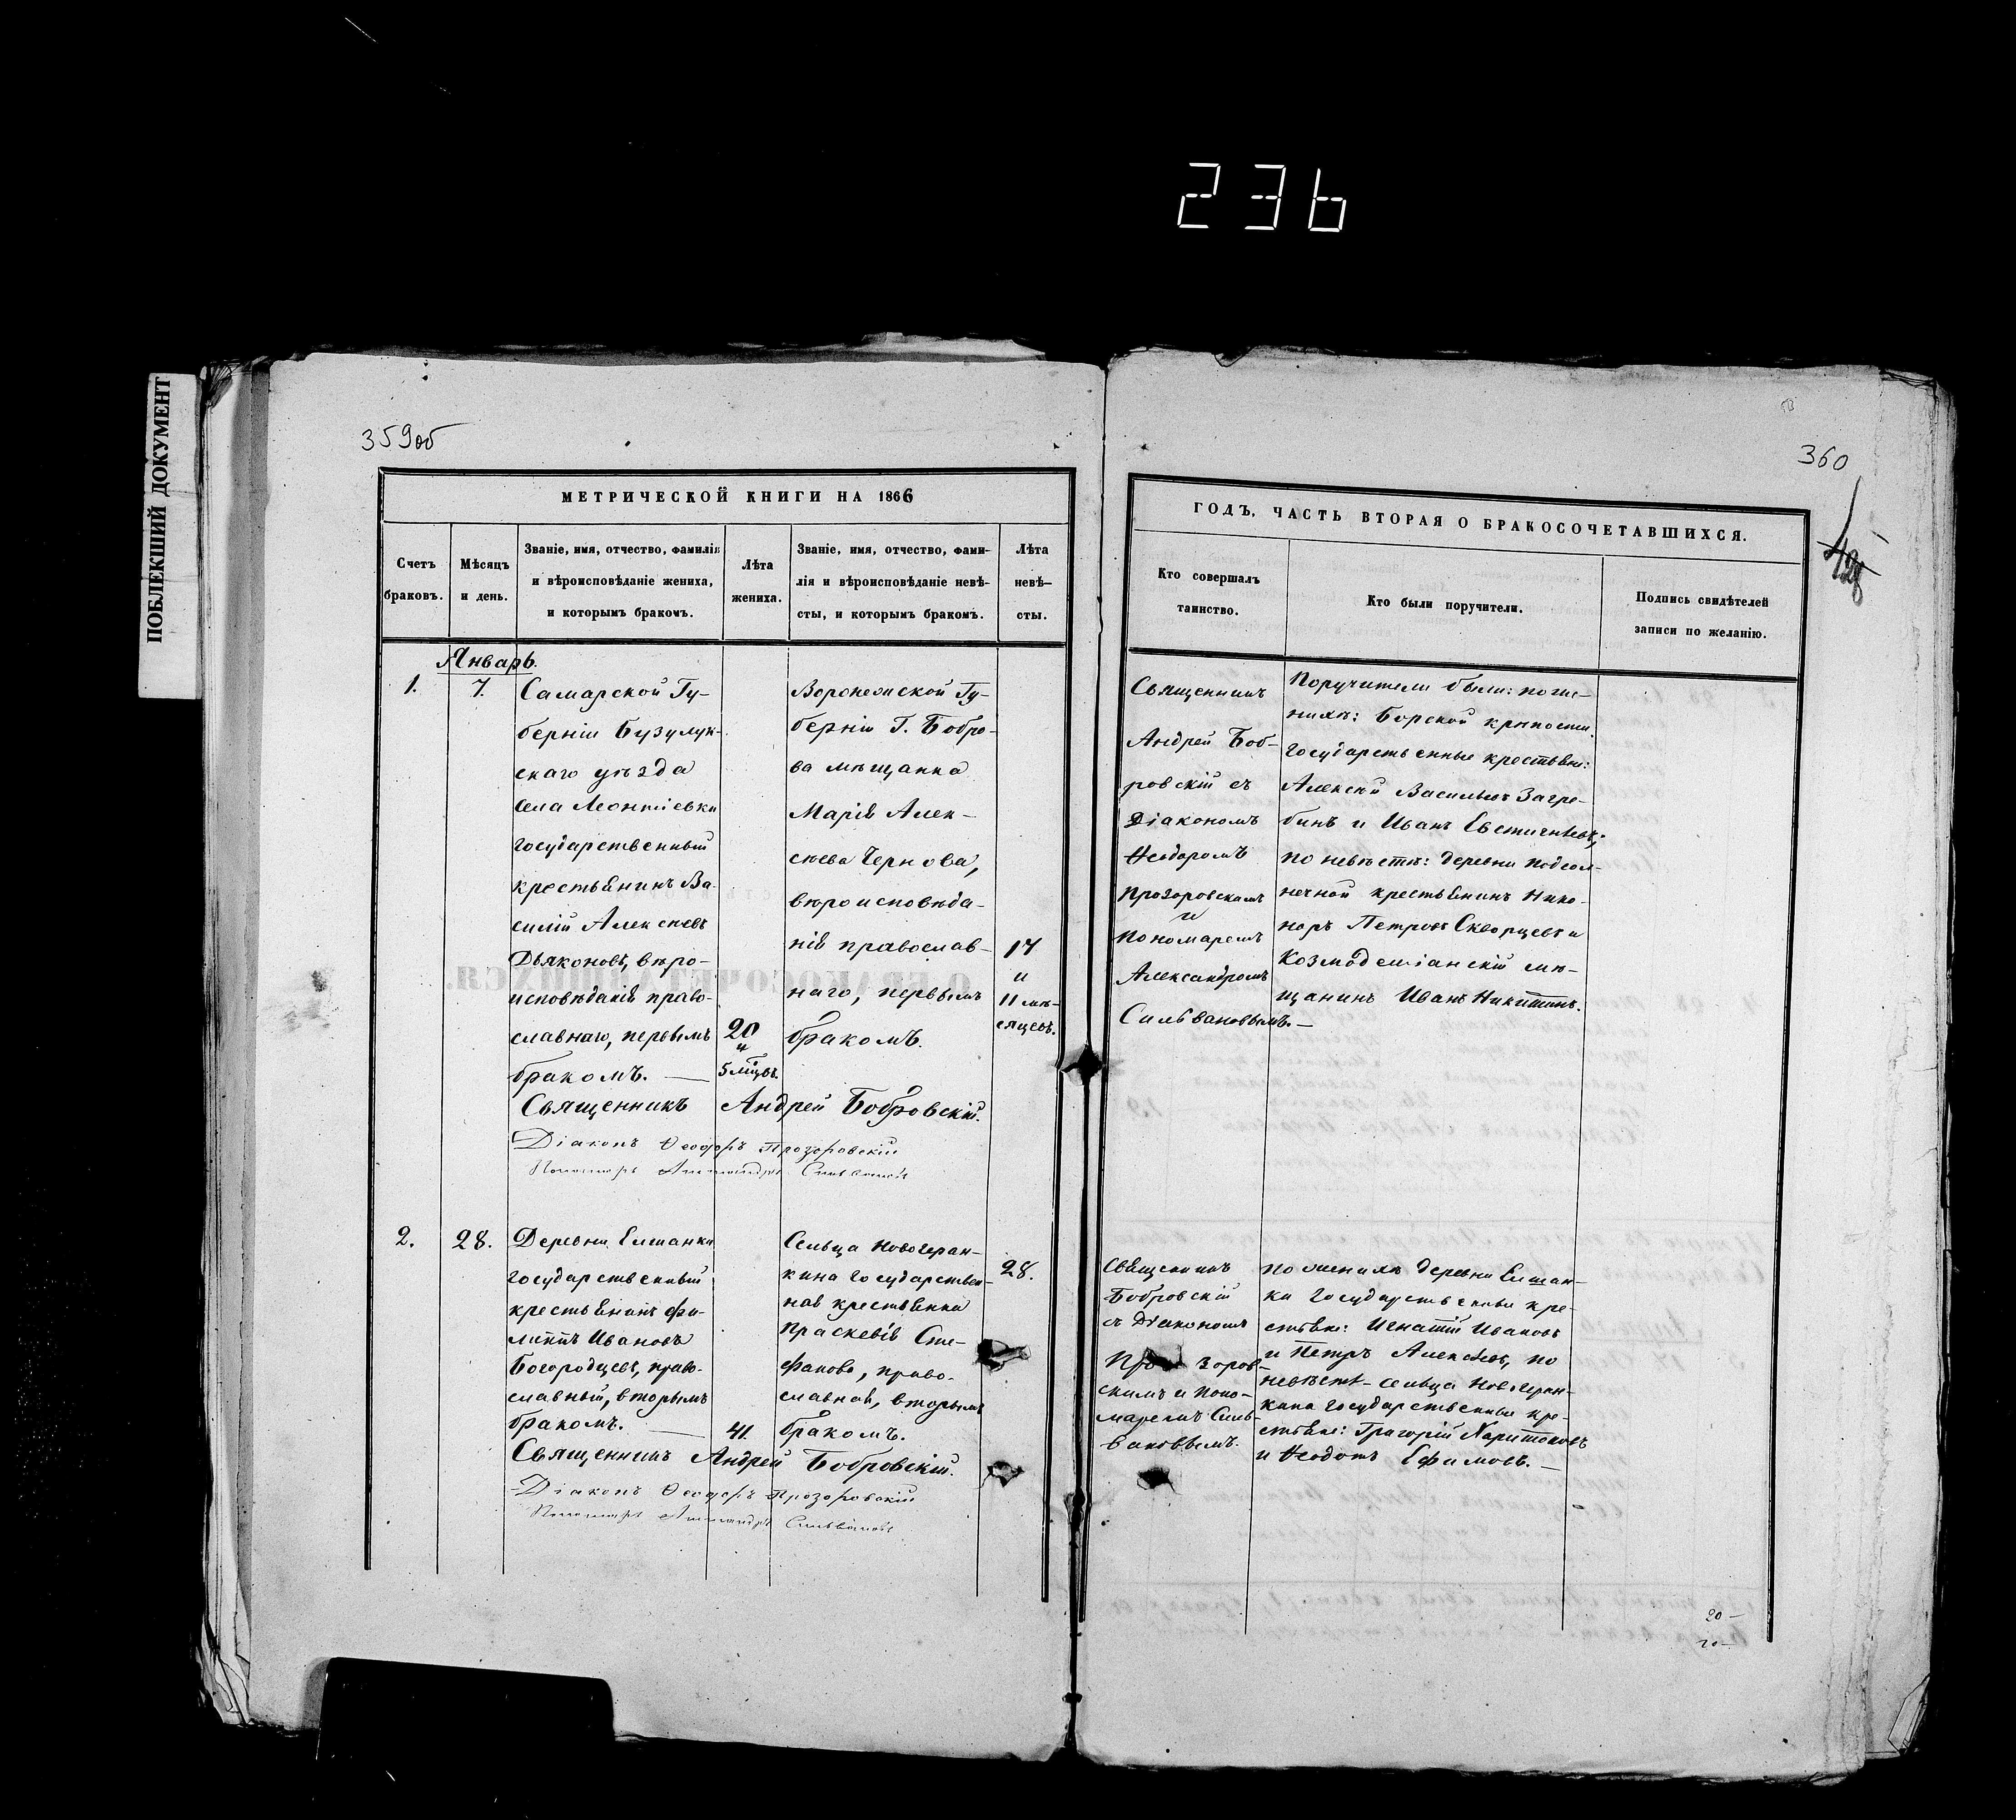 236
ПОБЛЕКШИЙ ДОКУМЕНТ
359об
МЕТРИЧЕСКОЙ КНИГИ НА 1866
Счетъ
браковъ.
Мѣсяцъ
и день.
Званіе, имя, отчество, фамилія
и вѣроисповѣданіе жениха,
и которымъ бракомъ.
Лѣта
жениха.
Званіе, имя, отчество, фами-
лія и вѣроисповѣданіе невѣ-
сты, и которымъ бракомъ.
Лѣта
невѣ-
сты.
Январь.
1.
7.
Самарской Гу-
берніи Бузулук-
скаго уѣзда
села Леонтіевки
государственный
крестьянинъ Ва-
силій Алексѣевъ
Дьяконовъ, вѣро-
исповѣданія право-
славнаго, первымъ
бракомъ. —
20
и
5 мцвъ.
Воронежской Гу-
берніи Г. Бобро-
ва мѣщанка
Марія Алек-
сѣева Чернова,
вѣроисповѣда-
нія православ-
наго, первымъ
бракомъ.
17
и
11 мѣ-
сяцевъ.
Священникъ Андрей Бобровскій.
Діаконъ Ѳеодоръ Прозоровскій
Пономарь Александръ Сильвановъ
2.
28.
Деревни Елшанки
государственный
крестьянинъ Фи-
липпъ Ивановъ
Богородцевъ, право-
славный, вторымъ
бракомъ. —
41.
Сельца Новогеран-
кина государствен-
ная крестьянка
Праскевія Сте-
фанова, право-
славная, вторымъ
бракомъ.
28.
Священникъ Андрей Бобровскій.
Діаконъ Ѳеодоръ Прозоровскій
Пономарь Александръ Сильвановъ
360
ГОДЪ, ЧАСТЬ ВТОРАЯ О БРАКОСОЧЕТАВШИХСЯ.
Кто совершалъ
таинство.
Кто были поручители.
Подпись свидѣтелей
записи по желанію.
Священникъ
Андрей Боб-
ровскій съ
Діакономъ
Ѳеодоромъ
Прозоровскимъ
и
Пономаремъ
Александромъ
Сильвановымъ. —
Поручители были: по же-
нихѣ: Борской крѣпости
государственные крестьяне:
Алексѣй Васильевъ Загре-
бинъ и Иванъ Евстигнѣевъ;
по невѣстѣ: деревни Подсол-
нечной крестьянинъ Нико-
норъ Петровъ Скворцевъ и
Козмодемianскій мѣ-
щанинъ Иванъ Никитинъ.
Священникъ
Бобровскій
съ Діакономъ
Прозоров-
скимъ и Поно-
маремъ Силь-
вановымъ.
По женихѣ деревни Елшан-
ки государственные кре-
стьяне: Игнатій Ивановъ
и Петръ Алексѣевъ, по
невѣстѣ - сельца Новогеран-
кина государственные кре-
стьяне: Григорій Харитоновъ
и Ѳеодотъ Ефимовъ. —
20 —
20 —